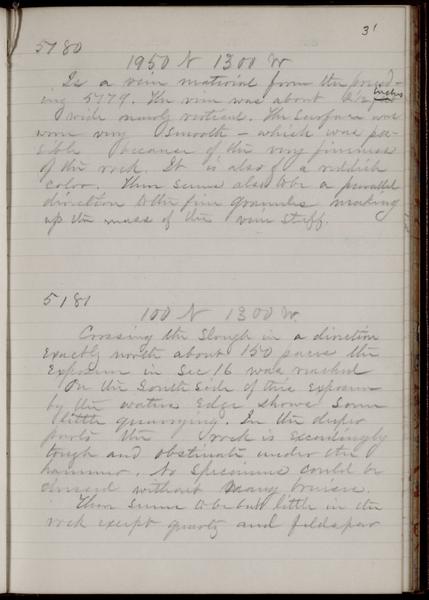 31
5180
1950 N 1300 W.
Is a vein material from the preced-
ing 5179. The vein was about inches
wide nearly vertical. The surface was
worn very smooth - which was pos-
sible because of the very fineness
of the rock. It is also of a reddish
color. There seems also to be a parallel
direction to the fine granules making
up the mass of the vein stuff.
5181
100 N 1300 W.
Crossing the Slough in a direction
Exactly north about 150 paces the
Exposure in Sec 16 was reached
On the South Side of this Exposure
by the waters Edge shows some
little quarrying. In the deeper
parts the rock is exceedingly
tough and obstinate under the
hammer. No specimens could be
dressed without many bruises.
There seems to be but little in the
rock except quartz and feldspar